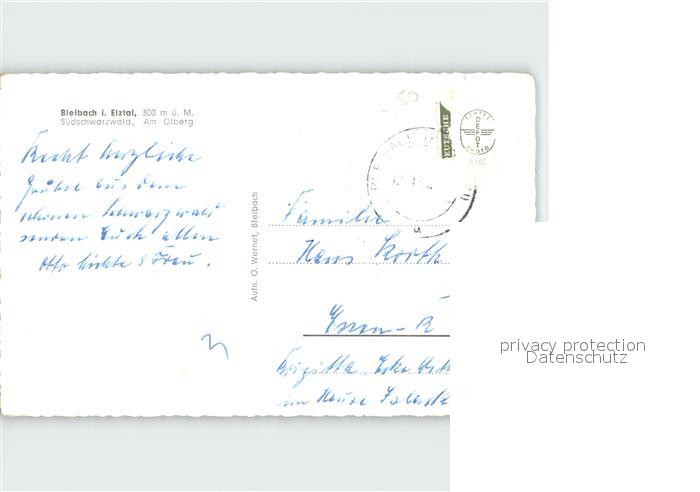 Bleibach i. Elztal, 300 m ü. M.
Südschwarzwald, Am Ölberg
Recht herzliche
Grüße aus dem
schönen Schwarzwald
senden Euch allen
Otto & Frau.
Aufn. O. Wernet, Bleibach
50
BLEIBACH
a
DEUTSCHE
ECHTES
DEFOT
PHOTO
Familie
Hans Korth
Essen-
Brigitta
im Hause
privacy protection
Datenschutz